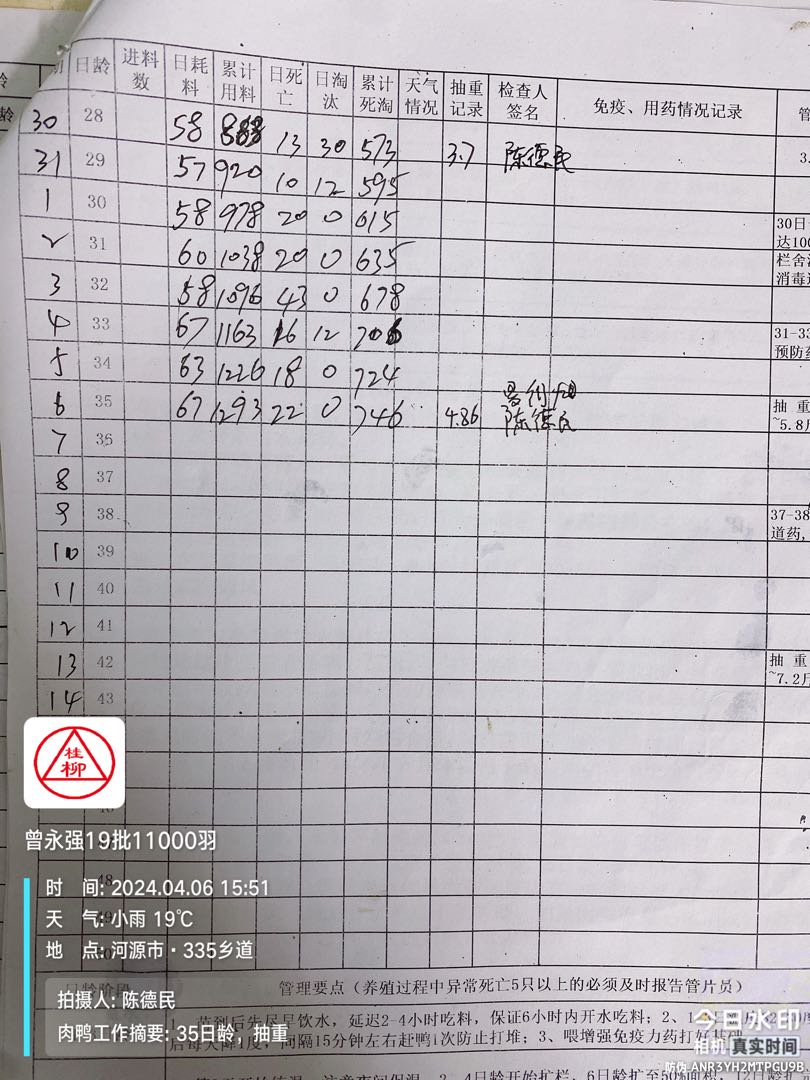 龄
期 日龄 进料数 日耗料 累计用料 日死亡 日淘汰 累计死淘 天气情况 抽重记录 检查人签名 免疫、用药情况记录 管
30 28 58 888 13 30 573
31 29 57 920 10 12 595 3.7 陈德民 3.
1 30 58 978 20 0 615 30日
达100
2 31 60 1038 20 0 635 栏舍
消毒
3 32 58 1096 43 0 678
4 33 67 1163 16 12 706 31-33
预防药
5 34 63 1226 18 0 724
6 35 67 1293 22 0 746 4.86 陈德民 抽 重
~5.8斤
7 36
8 37
9 38 37-38
道药,
10 39
11 40
12 41
13 42 抽 重
~7.2斤
14 43
桂柳
曾永强19批11000羽
48
时 间: 2024.04.06 15:51
天 气: 小雨 19℃
地 点: 河源市·335乡道
日龄阶段 管理要点（养殖过程中异常死亡5只以上的必须及时报告管片员）
拍摄人: 陈德民
肉鸭工作摘要: 35日龄，抽重
饮水，延迟2-4小时吃料，保证6小时内开水吃料；2、
后每天降1度，间隔15分钟左右赶鸭1次防止打堆；3、喂增强免疫力药
今日水印
相机 真实时间
防伪 ANR3YH2MTPGU9B
2-4日龄开始扩栏，6日龄扩至50%面积